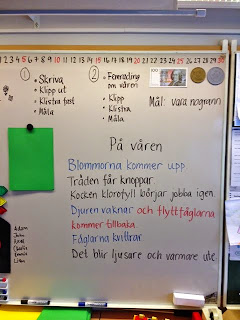 1 2 3 4 5 6 7 8 9 10 11 12 13 14 15 16 17 18 19 20 21 22 23 24 25 26 27 28 29 30
①
• Skriva
• Klipp ut
• Klistra fast
• Måla
②
• Femrading om våren
• Klipp
• Klistra
• Måla
Mål: vara nogrann
På våren
Blommorna kommer upp.
Träden får knoppar.
Kocken klorofyll börjar jobba igen.
Djuren vaknar och flyttfåglarna
kommer tillbaka.
Fåglarna kvittrar.
Det blir ljusare och varmare ute.
Adam
John